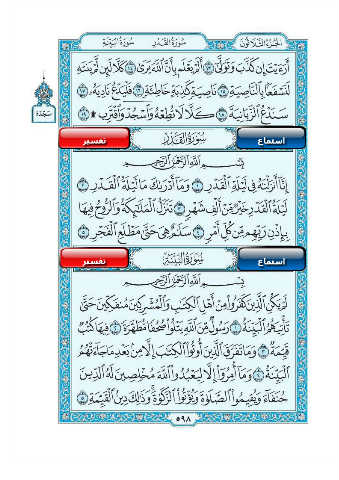 الجزء الثلاثون سورة القدر سورة البينة
أَرَءَيْتَ إِن كَذَّبَ وَتَوَلَّىٰٓ ١٣ أَلَمْ يَعْلَم بِأَنَّ ٱللَّهَ يَرَىٰ ١٤ كَلَّا لَئِن لَّمْ يَنتَهِ
لَنَسْفَعًۢا بِٱلنَّاصِيَةِ ١٥ نَاصِيَةٍ كَٰذِبَةٍ خَاطِئَةٍ ١٦ فَلْيَدْعُ نَادِيَهُۥ ١٧
سَنَدْعُ ٱلزَّبَانِيَةَ ١٨ كَلَّا لَا تُطِعْهُ وَٱسْجُدْ وَٱقْتَرِب ۩ ١٩
سجدة
استماع سورة القدر تفسير
بِسْمِ ٱللَّهِ ٱلرَّحْمَٰنِ ٱلرَّحِيمِ
إِنَّآ أَنزَلْنَٰهُ فِى لَيْلَةِ ٱلْقَدْرِ ١ وَمَآ أَدْرَىٰكَ مَا لَيْلَةُ ٱلْقَدْرِ ٢
لَيْلَةُ ٱلْقَدْرِ خَيْرٌ مِّنْ أَلْفِ شَهْرٍ ٣ تَنَزَّلُ ٱلْمَلَٰٓئِكَةُ وَٱلرُّوحُ فِيهَا
بِإِذْنِ رَبِّهِم مِّن كُلِّ أَمْرٍ ٤ سَلَٰمٌ هِىَ حَتَّىٰ مَطْلَعِ ٱلْفَجْرِ ٥
استماع سورة البينة تفسير
بِسْمِ ٱللَّهِ ٱلرَّحْمَٰنِ ٱلرَّحِيمِ
لَمْ يَكُنِ ٱلَّذِينَ كَفَرُوا۟ مِنْ أَهْلِ ٱلْكِتَٰبِ وَٱلْمُشْرِكِينَ مُنفَكِّينَ حَتَّىٰ
تَأْتِيَهُمُ ٱلْبَيِّنَةُ ١ رَسُولٌ مِّنَ ٱللَّهِ يَتْلُوا۟ صُحُفًا مُّطَهَّرَةً ٢ فِيهَا كُتُبٌ
قَيِّمَةٌ ٣ وَمَا تَفَرَّقَ ٱلَّذِينَ أُوتُوا۟ ٱلْكِتَٰبَ إِلَّا مِنۢ بَعْدِ مَا جَآءَتْهُمُ
ٱلْبَيِّنَةُ ٤ وَمَآ أُمِرُوٓا۟ إِلَّا لِيَعْبُدُوا۟ ٱللَّهَ مُخْلِصِينَ لَهُ ٱلدِّينَ
حُنَفَآءَ وَيُقِيمُوا۟ ٱلصَّلَوٰةَ وَيُؤْتُوا۟ ٱلزَّكَوٰةَ وَذَٰلِكَ دِينُ ٱلْقَيِّمَةِ ٥
٥٩٨